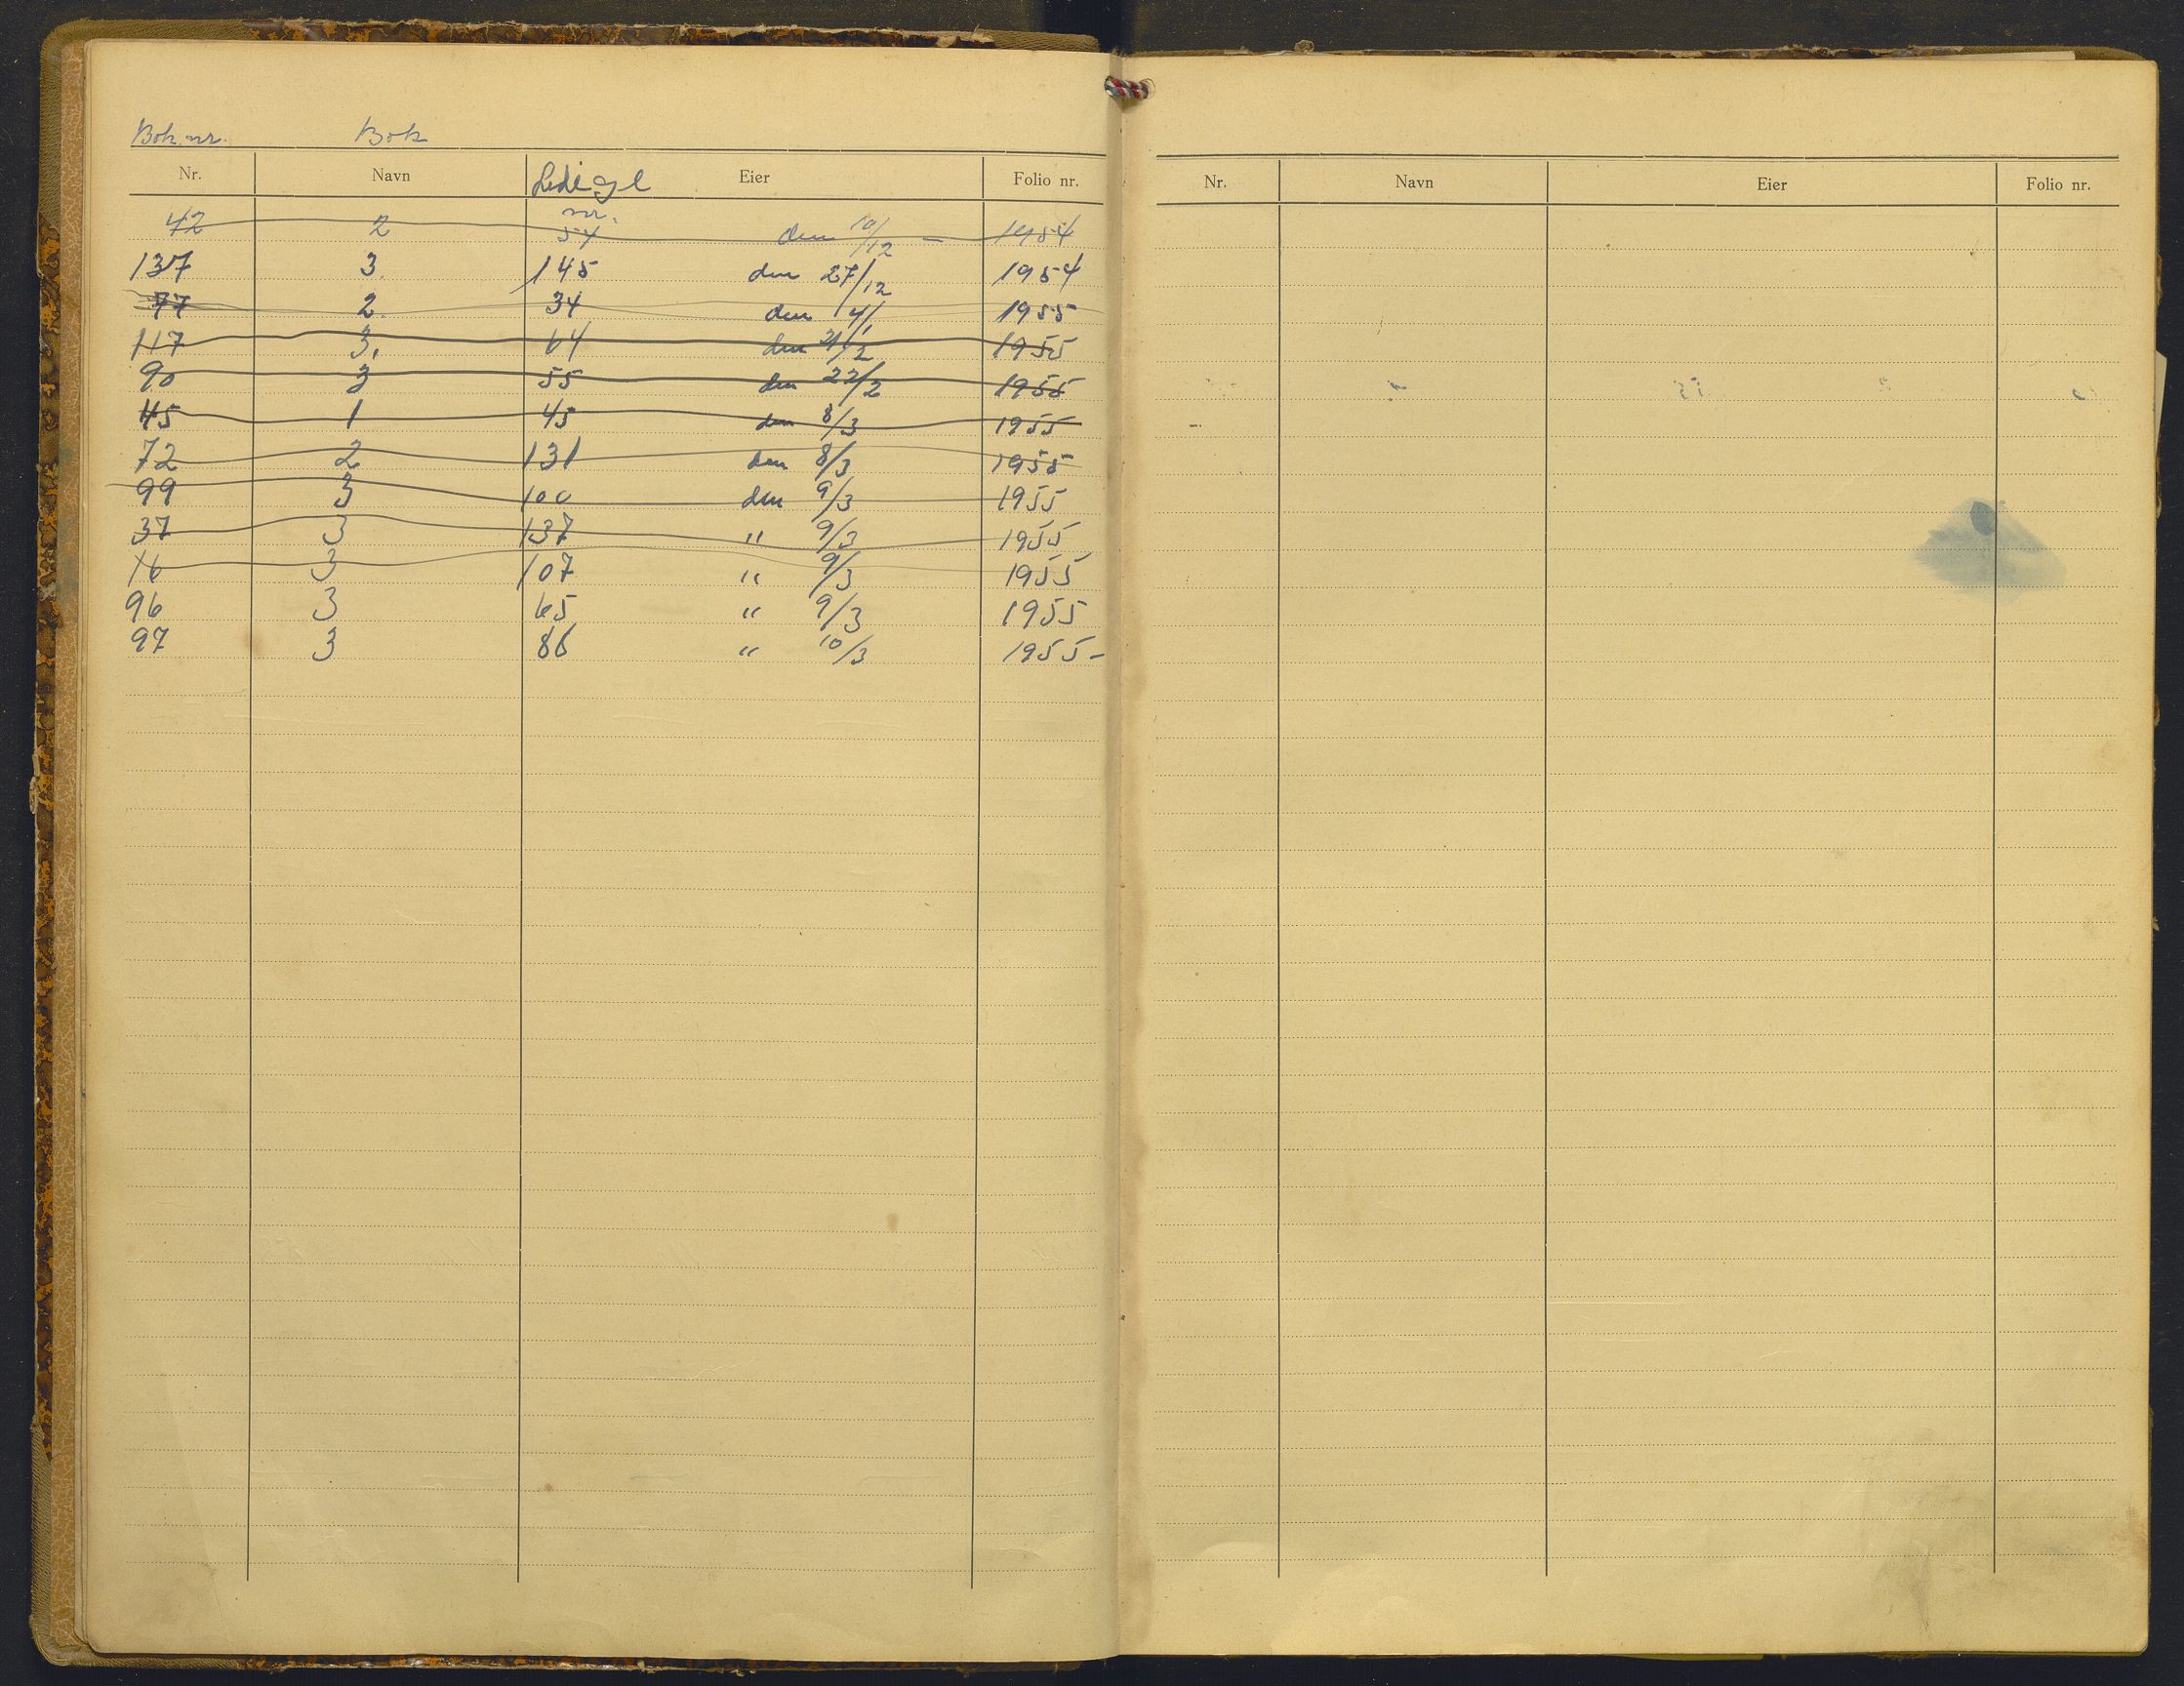 Bok nr. Bok
Nr. Navn Eier Folio nr.
nr.
42 2 54 den 10/12 - 1954
137 3 145 den 27/12 1954
77 2. 34 den 4/1 1955
117 3. 64 den /2 1955
90 3 55 den 22/2 1955
45 1 45 den 8/3 1955
72 2 131 den 8/3 1955
99 3 100 den 9/3 1955
37 3 137 " 9/3 1955
16 3 107 " 9/3 1955
96 3 65 " 9/3 1955
97 3 86 " 10/3 1955-
Nr. Navn Eier Folio nr.